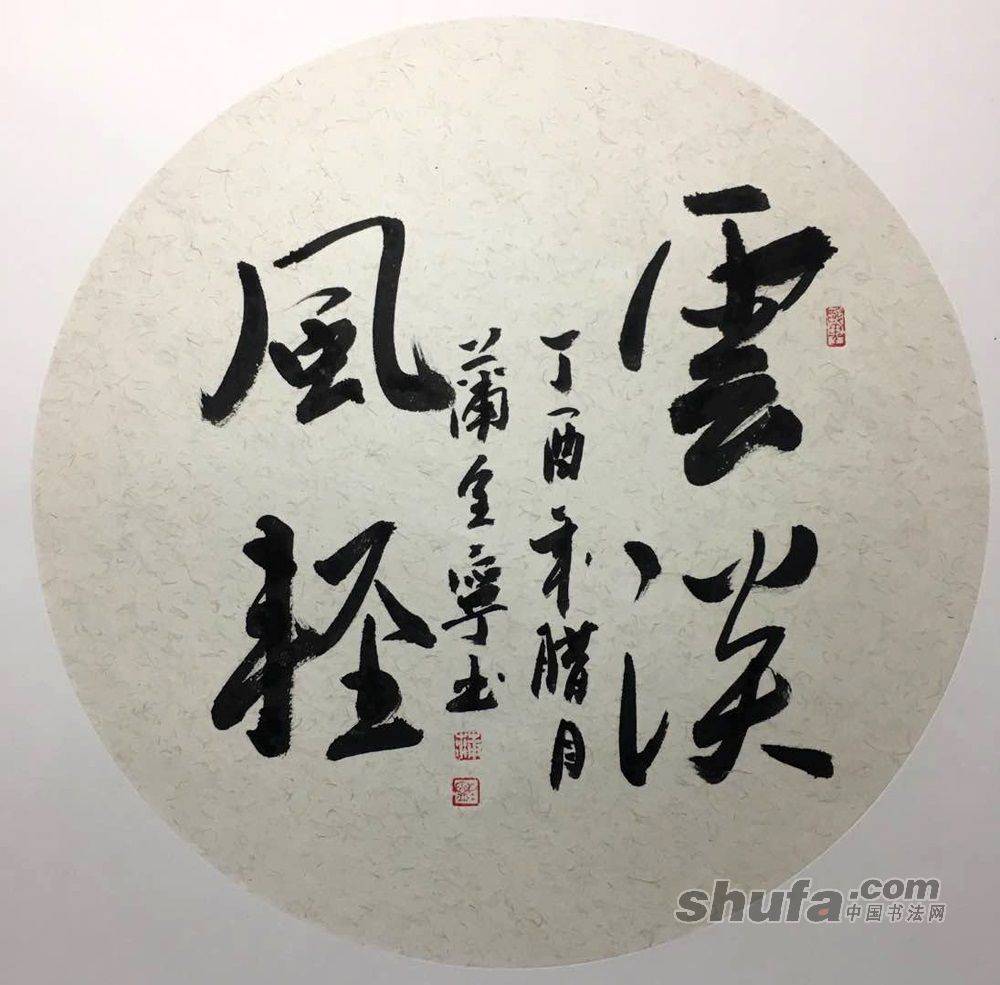 雲淡
風軽
丁酉年腊月
蒲金寧书
shufa.com
中国书法网